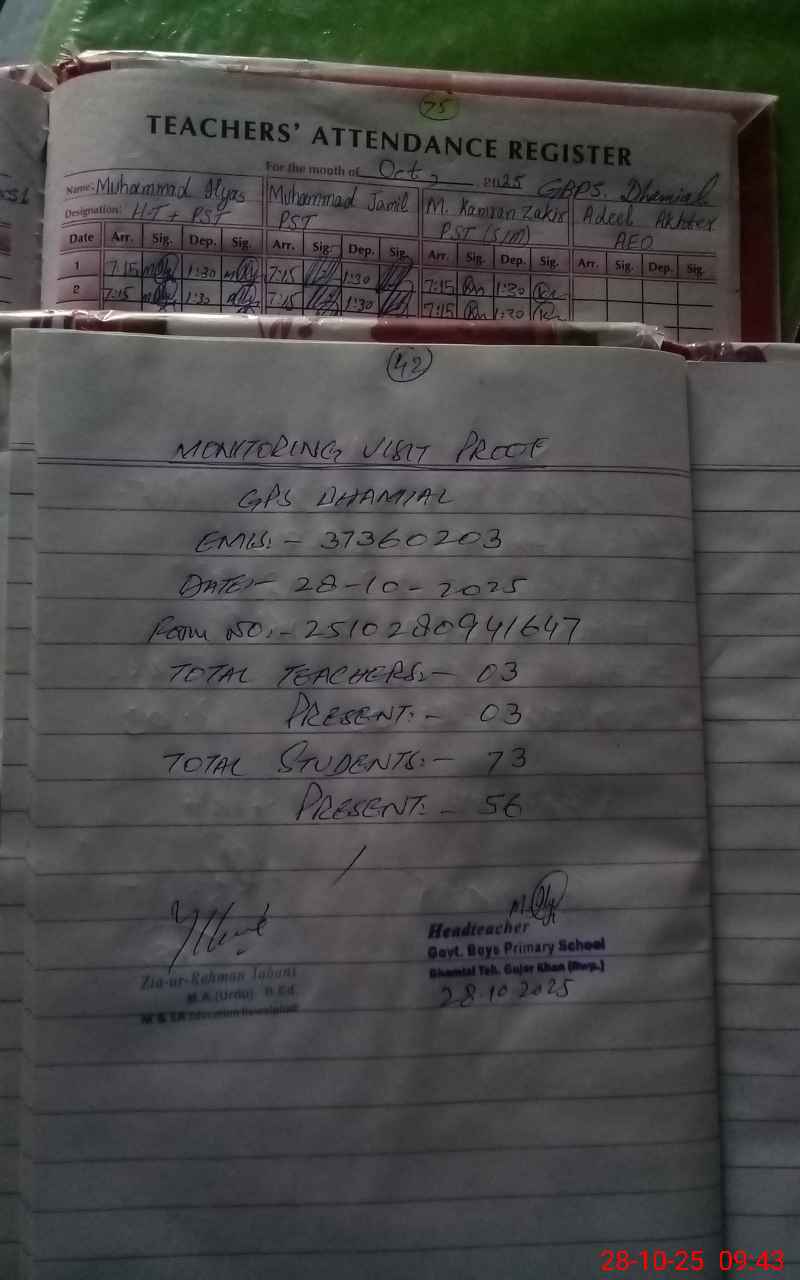 75
TEACHERS' ATTENDANCE REGISTER
For the month of Oct, 2025 GBPS. Dhamial
Name: Muhammad Ilyas Muhammad Jamil M. Kamran Zakir Adeel Akhter
Designation: H-T + PST PST PST (S/M) AEO
Date Arr. Sig. Dep. Sig. Arr. Sig. Dep. Sig. Arr. Sig. Dep. Sig. Arr. Sig. Dep. Sig.
1 7:15 1:30 7:15 1:30 7:15 1:30
2 7:15 1:30 7:15 1:30 7:15 1:30
42
MONITORING VISIT PROOF
GPS DHAMIAL
EMIS:- 37360203
DATE:- 28-10-2025
Form NO:- 2510280941647
TOTAL TEACHERS:- 03
PRESENT:- 03
TOTAL STUDENTS:- 73
PRESENT:- 56
Zia-ur-Rehman
M.A.(Urdu) B.Ed.
Headteacher
Govt. Boys Primary School
Dhamial Teh. Gujar Khan (Rwp.)
28.10.2025
28-10-25 09:43